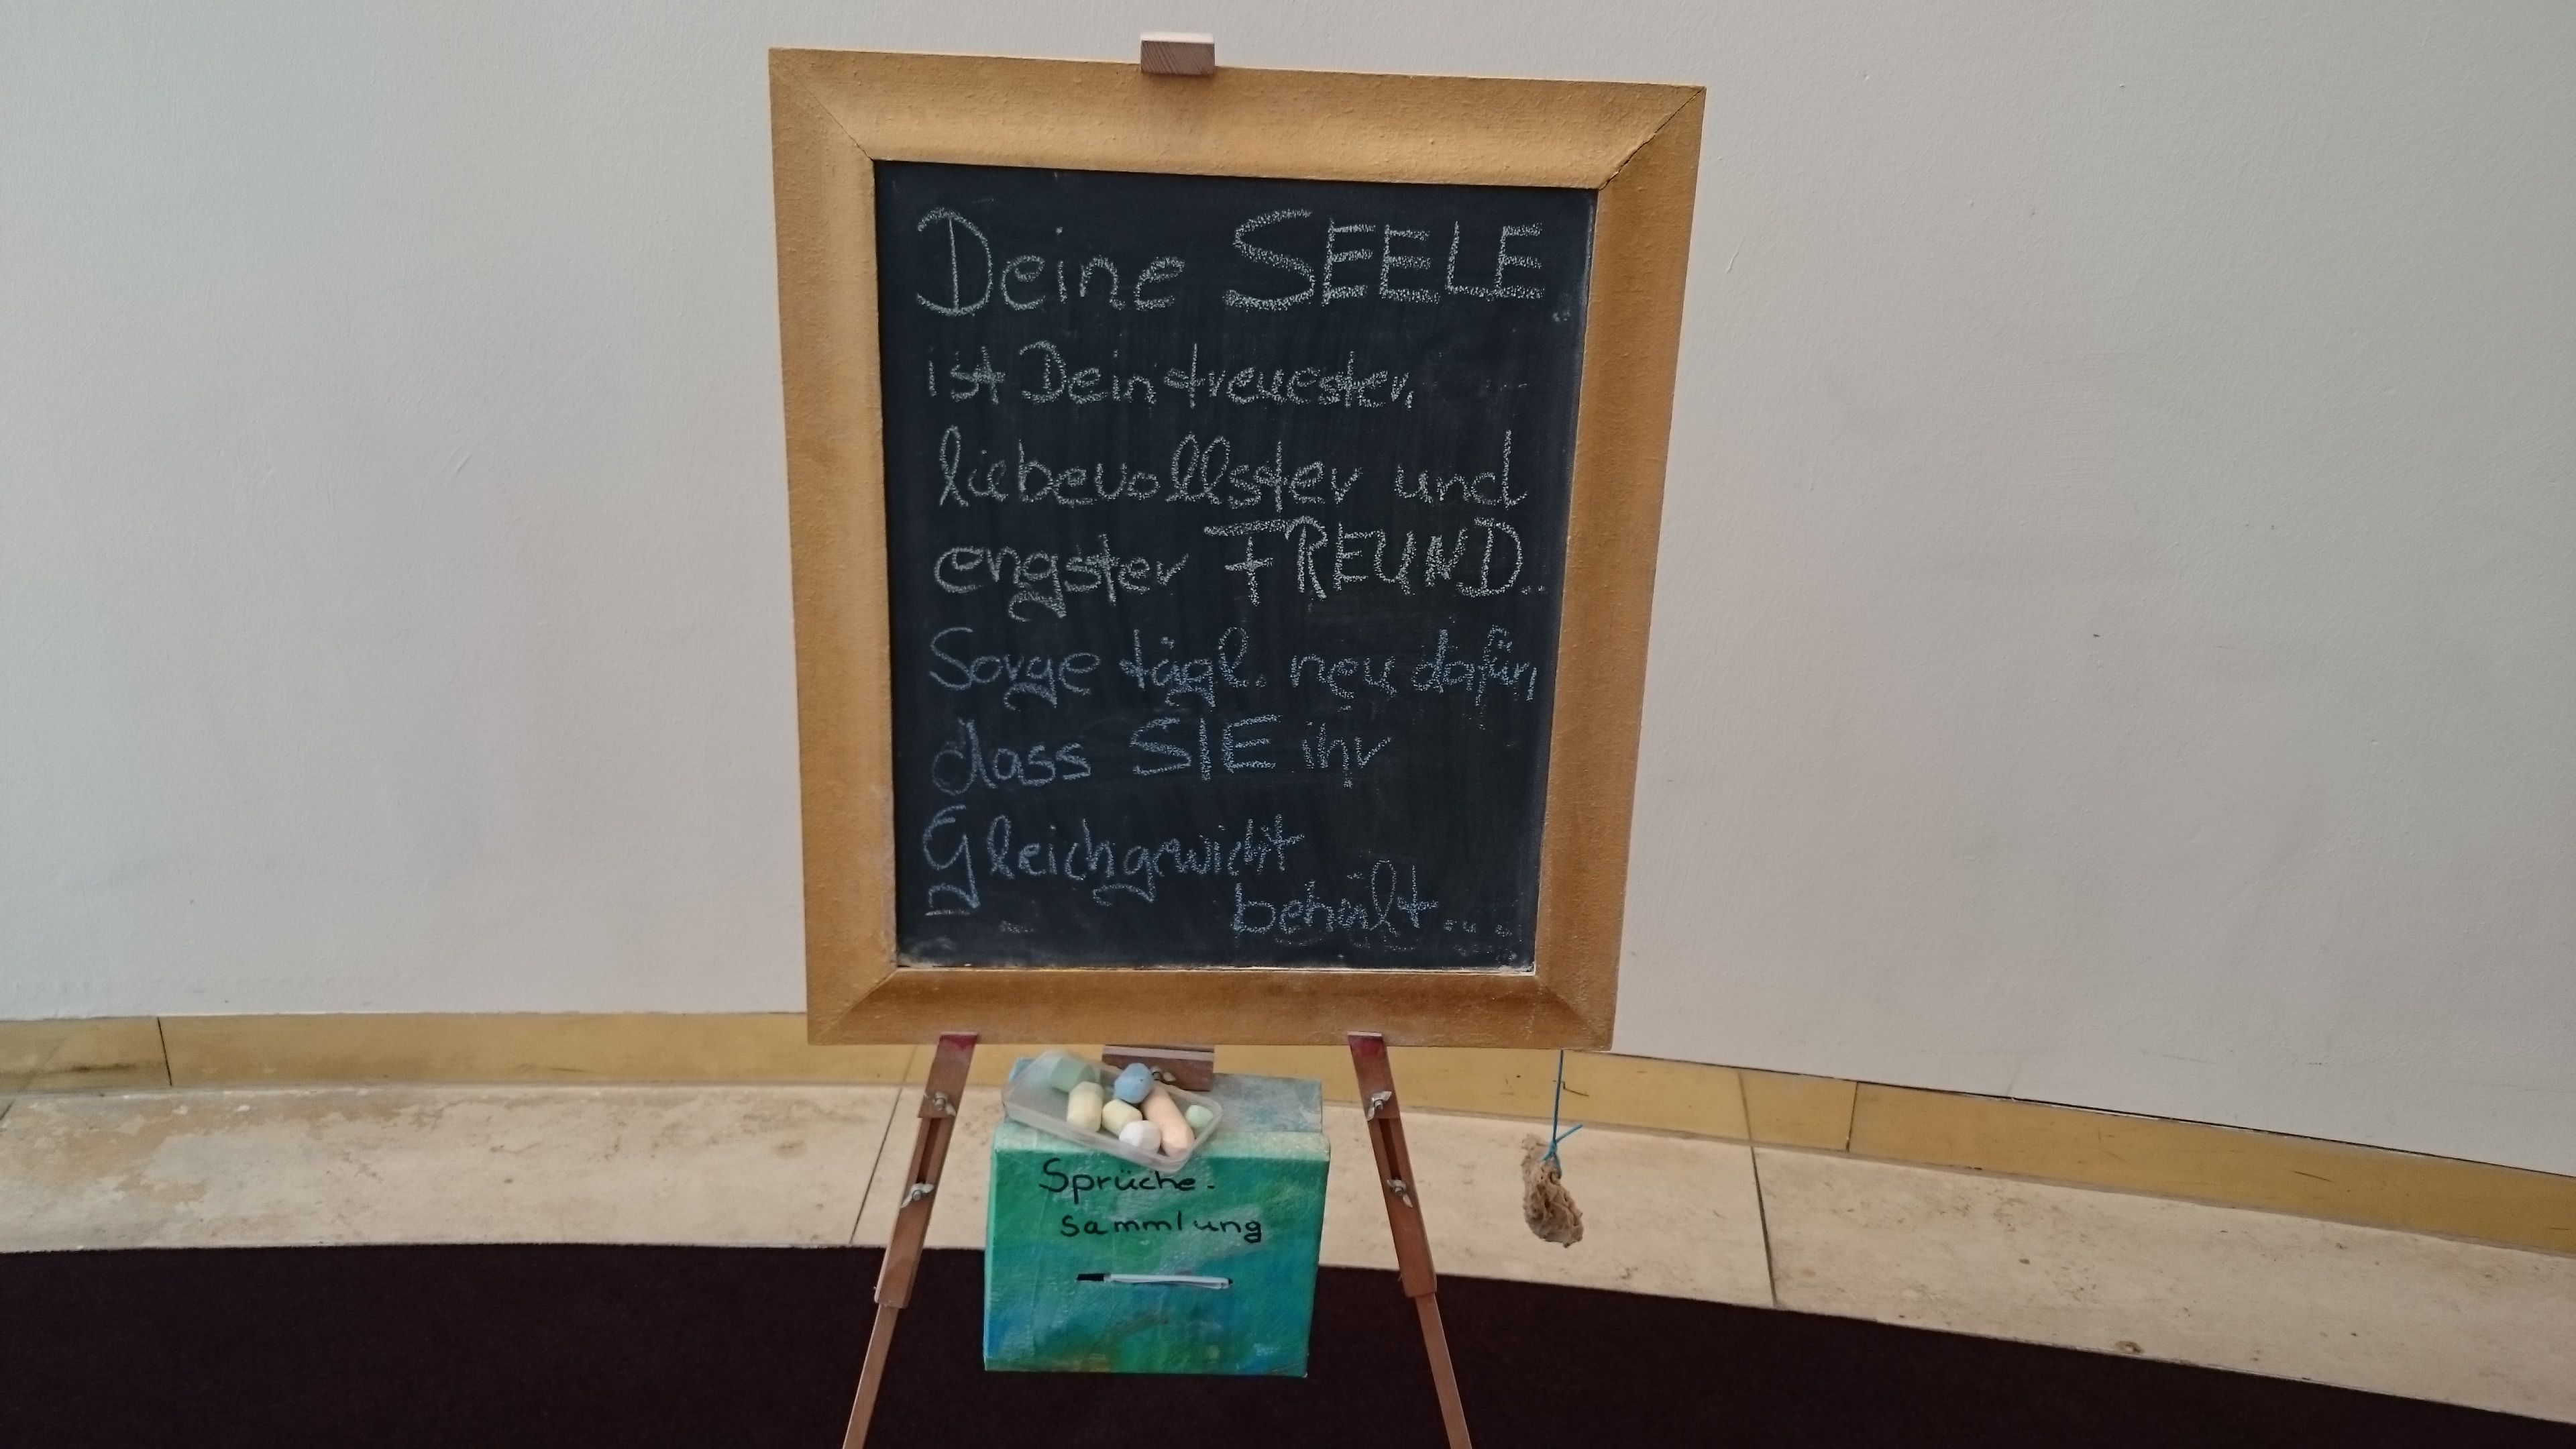 Deine SEELE
ist Dein treuester,
liebevollster und
engster FREUND...
Sorge tägl. neu dafür,
dass SIE ihr
Gleichgewicht
behält....
Sprüche-
sammlung